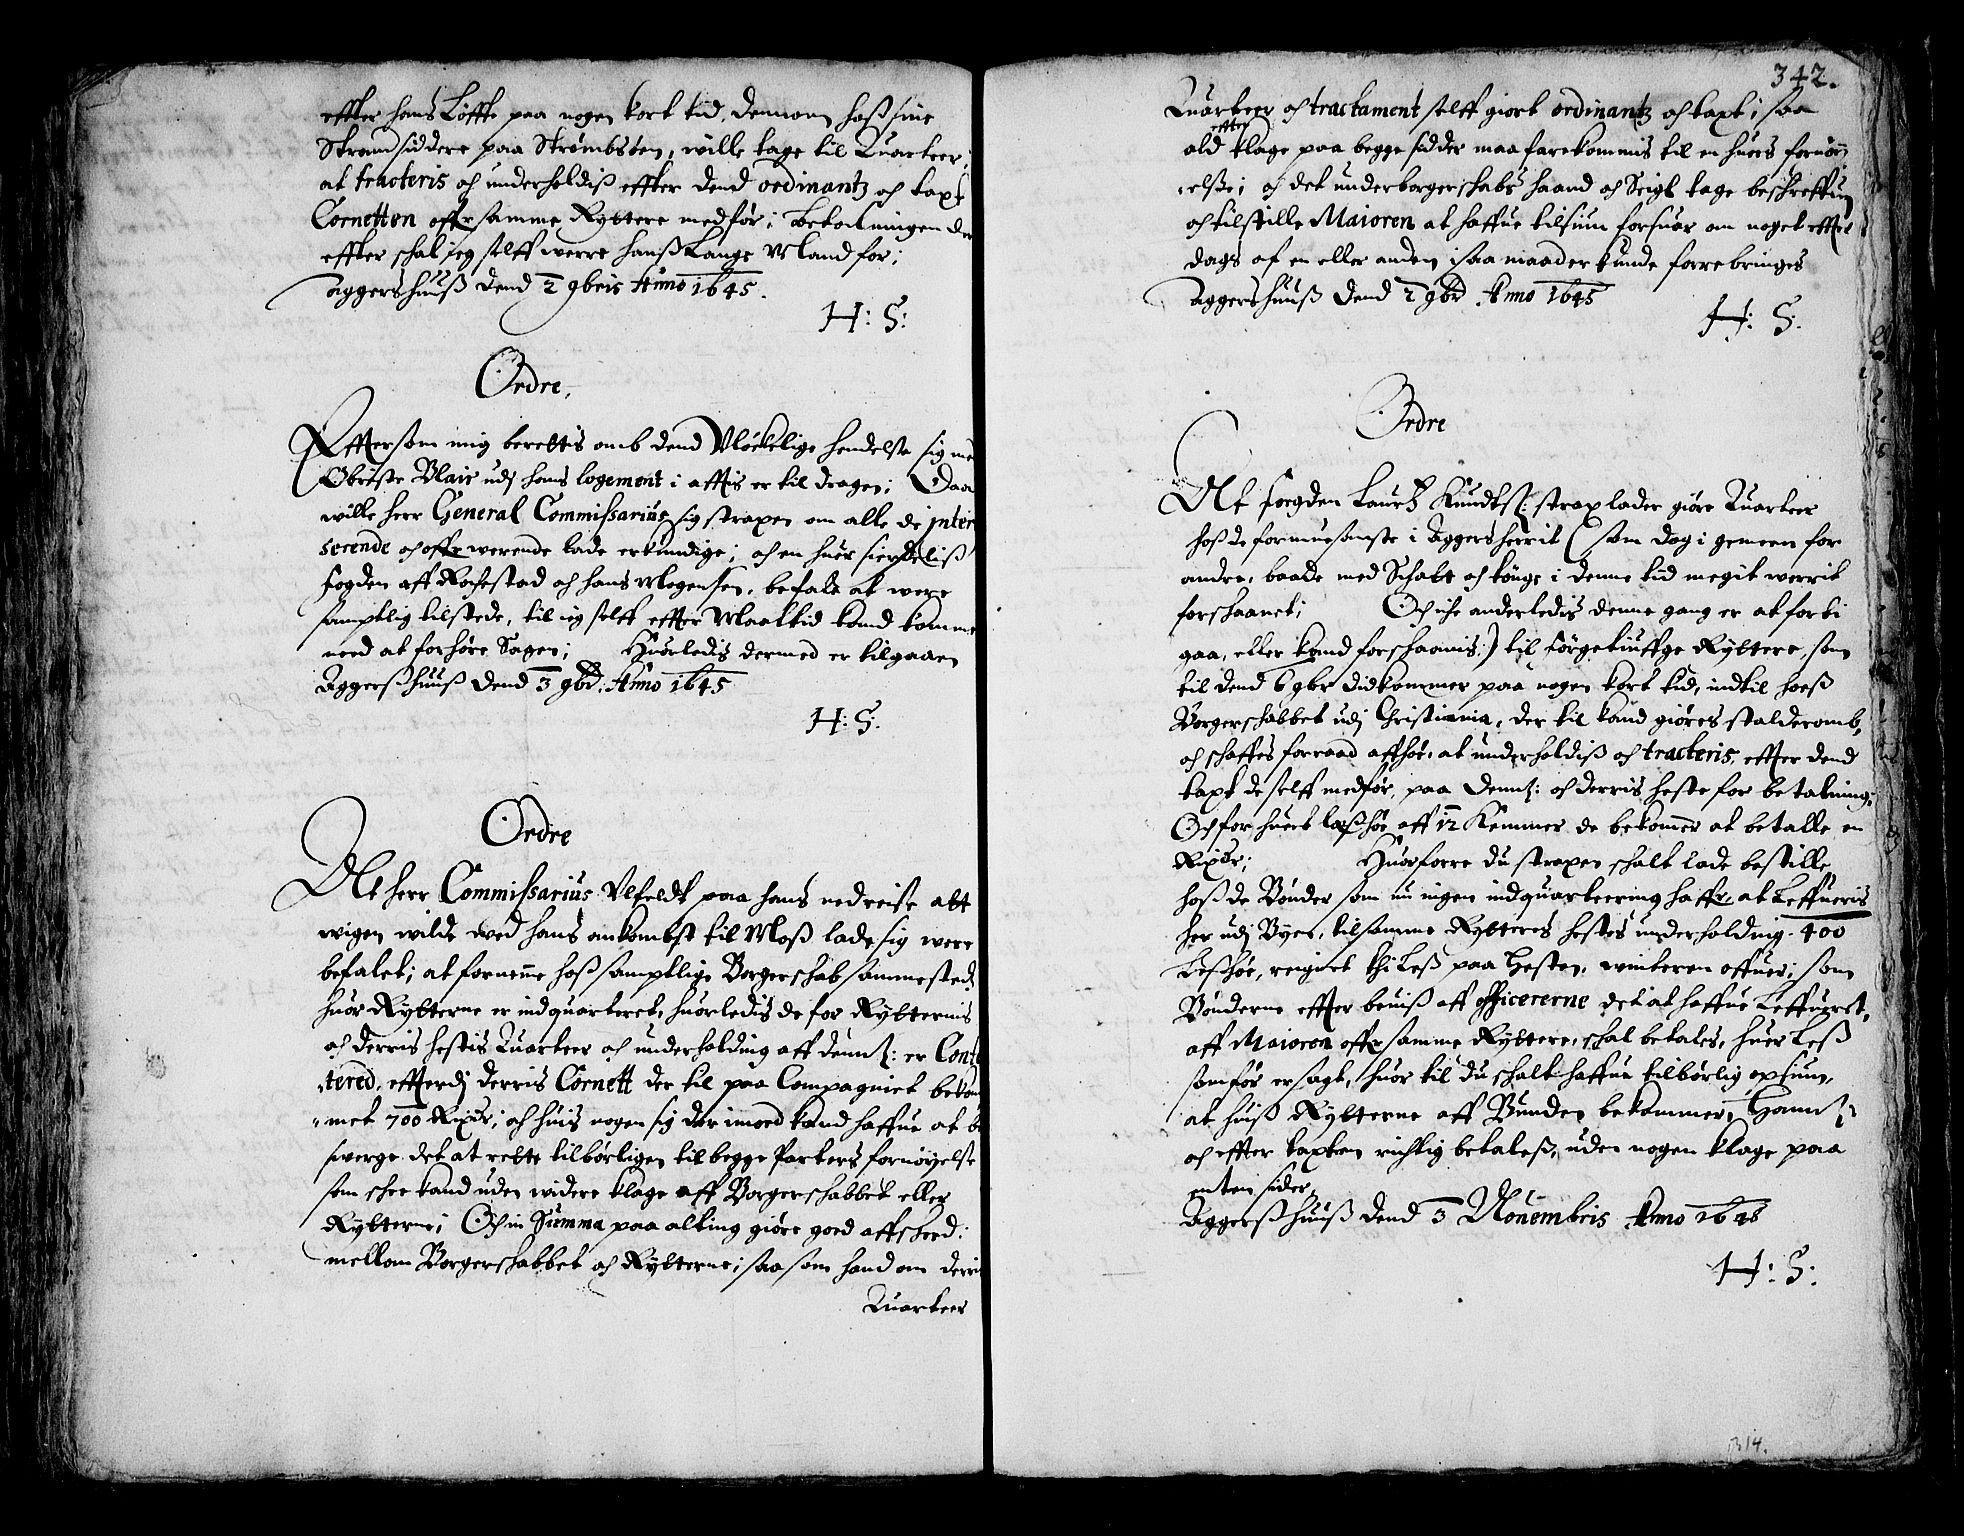 effter hans Løffte paa nogen kort tid, dennom hoß sine
Strandsiddere paa Strømbsøen, wille tage til Quarteer,
at tracteris och underholdiß effter dend ordinantz och taxt
Cornetten offr samme Ryttere medfør; Betalningen der
effter schal ieg selff werre hanß Lange Mand for;
Aggershuuß dend 2 9bris Anno 1645.
H: S:
Ordre,
Effttersom mig berettis omb dend Vlöckelige hendelse sig med
Obriste Blair udj hans logement i afftis er til dragen; Daa
wille herr General Commissarius sig strapen om alle de inter
serende och offr werende lade erkundige; och en huer sierdeliß
fogden aff Rochestad och hans Mogensen, befale at were
samptlig tilstede, til ieg selff effter Maaltid kand komme
need at forhöre Sagen; Huorledis dermed er tilgaaen
Aggerßhuuß dend 3 9bd: Anno 1645
H: S:
Ordre
At herr Commissarius Vlfeldt paa hans nedreise att
wigen wilde wed hans ankombst til Moß lade sig were
befalet; at fornemme hoß samptlige Borgerschab sammesteds
huor Rytterne er indquarteret, huorledis de for Rytternis
och derris hestis Quarteer och underholding aff dennß: er Conten
tered, effterdj derris Cornett der til paa Compagniet bekom
met 700 Rixdr; och huis nogen sig der imoed kand haffue at be
swerge det at rette tilbørligen til begge Parters fornøyelse
som schee kand uden widere klage aff Borgerschabbet eller
Rytterne; Och in Summa paa alting giøre goed affscheed:
mellom Borgerschabbet och Rytterne; saa som hand om derris
Quarteer
342.
Quarteer och tractament selff giort ordinantz och taxt; saa
effter
ald klage paa begge sidder maa forekommis til en huers fornøy
elße; och det under borgerschabs haand och Seigl tage beschreffuen
och tilstille Maioren at haffue tilsiun forsuar om noget effter
dags af en eller anden i saa maader kunde forrebringes
Aggershuuß dend 2 9br Anno 1645
H: S:
Ordre
At fogden Lauritz Knudtß: strax lader giøre Quarteer
hoß de formuesomste i Aggersherrit (som dog i gemeen for
andre, baade med Schatt och tönge i denne tid megit werrit
forschaanet; Och iche anderledis denne gang er at forbi
gaa, eller kand forschaanis:) til förgetiuffge Ryttere, som
til dend 6 9br didkommer paa nogen kort tid, indtil hoeß
Borgerschabbet udj Christiania, der til kand giöres stalderomb,
och schaffes forraad aff höe, at underholdiß och tracteris, effter dend
taxt de selff medför, paa dennß: och derris heste for betalning;
Och for huert læß höe aff 12 Kemmer de bekommer at betalle en
Rixdr; Huorforre du strapen schalt lade bestille
hoß de Bönder som nu ingen indquarteering haffr, at Leffueris
her udj Byen, til samme Rytteres hestes underholding 400
Leß höe, reignet thi Leß paa Hesten, winteren offuer; som
Bönderne effter beuiß aff officererne det at haffue Leffueret,
aff Maioren offr samme Ryttere, schal betales, huer Leß
somför er sagt, huor til du schalt haffue tilbørlig opsiun,
at huiß Rytterne aff Bunden bekommer, Hannß:
och effter taxten richtig betaleß, uden nogen klage paa
enten sider,
Aggerßhuuß dend 3 Nouembris Anno 1645
H: S:
314.